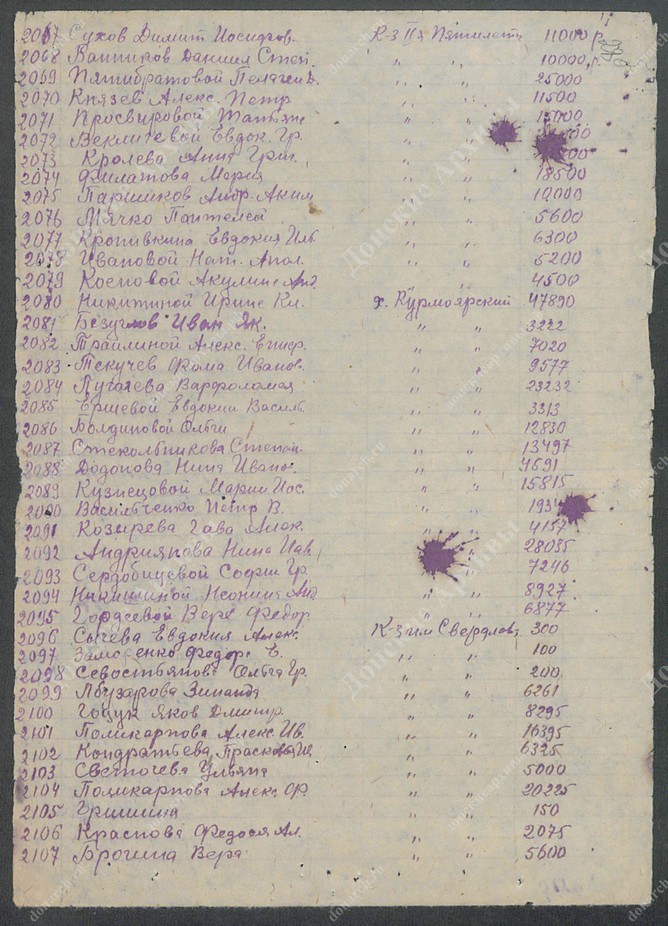 2067 Сухов Димит Иосифов. К-з IIя Пятилетк 11000 р.
2068 Банников Даниил Степ. " " 10000 р.
2069 Пятибратовой Пелагеи " " 25000
2070 Князев Алекс. Петр " " 11500
2071 Просвировой Татьяне " "
2072 Векличевой Евдок. Гр. " "
2073 Кролева Анна Григ. " "
2074 Филатова Мария " " 18500
2075 Паршиков Андр. Аким " " 10000
2076 Мячко Пантелей " " 5600
2077 Кропивкина Евдокия Иль " " 6300
2078 Ивановой Нат. Апол. " " 5200
2079 Косовой Акулине " 4500
2080 Никитиной Ирине Кл. х. Курмоярский 47890
2081 Безуглов Иван Як. " " 3222
2082 Траилиной Алекс. " " 7020
2083 Текучев Фома Иванов. " " 9577
2084 Пугачева Варфоломея " " 23232
2085 Ершевой Евдокии Василь. " " 3313
2086 Болдиновой Ольги " " 12830
2087 Стекольникова Степан " " 13497
2088 Додонова Нина Ивано. " " 4691
2089 Кузнецовой Марии Иос. " " 15815
2090 Васильченко Петр В. " "
2091 Козырева Алек. " " 4157
2092 Андриянова Нина Пав. " 28085
2093 Сердобинцевой Софии Гр. " 7246
2094 Никишиной " " 8927
2095 Гордеевой Вере Федор " " 6877
2096 Сычева Евдокия Алекс. К-з им Свердлова 300
2097 Федоре Е. " " 100
2098 Севостьянова Ольга Гр. " " 200
2099 Абузарова Зинаида " " 6261
2100 Гоцук Яков Дмитр. " " 8295
2101 Поликарпова Алекс Ив. " " 16395
2102 Кондратьева Прасковья Ив " " 6325
2103 Светочева Ульяна " " 5000
2104 Поликарпова Алекс Ф " " 20225
2105 Гришина " " 150
2106 Краснова Федосья Ал. " " 2075
2107 Брогина Вера " " 5600
Донские Архивы
donarch.ru